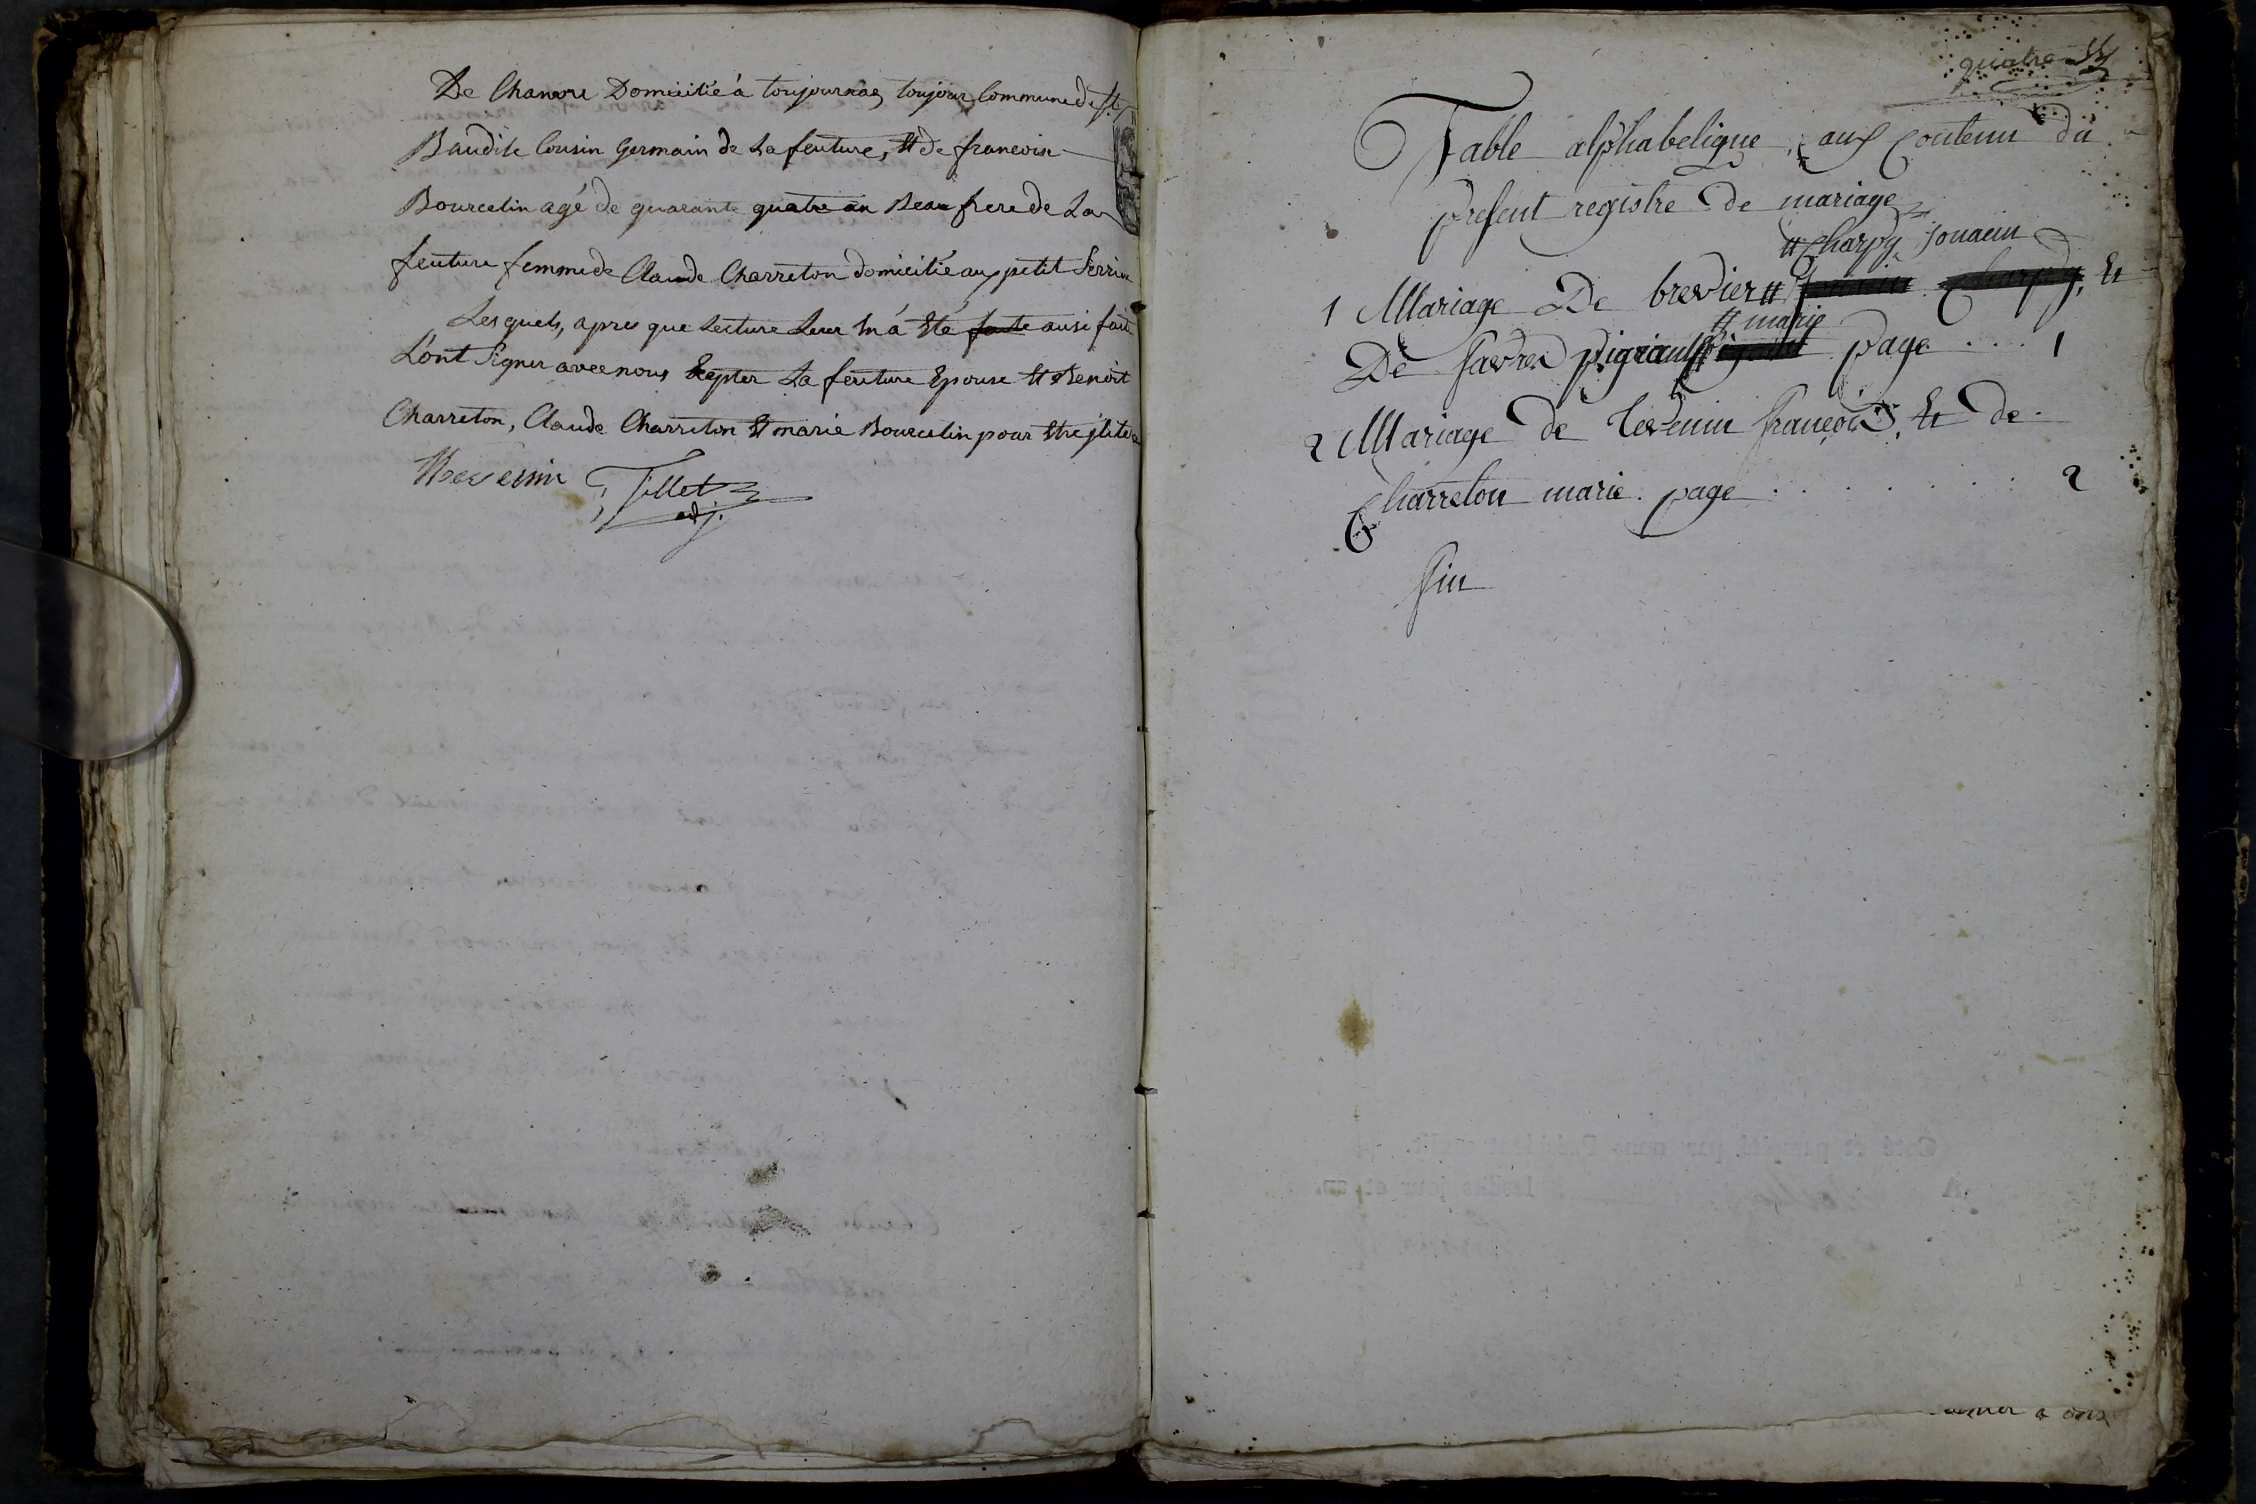 De Chanvre Domicilié à toujournas, toujour Commune de St
Baudile Cousin Germain de La feuture, Et de francoise
Bourcelin agé de quarante quatre an Beau frere de La
feuture femme de Claude Charreton domicilié au petit Serrin
Les quels, apres que Lecture Leur En á Eté faite ausi fait
L'ont Signer avec nous Excepter La feuture Epouse Et Benoit
Charreton, Claude Charreton Et marie Bourcelin pour Etre jliteré
Thevenin Tillet
adj.
quatre
Table alphabetique aux Contenu du
present registre De mariage
# Charpy Jonacin
1 Mariage De brevier # Et
# marie
De favre pigriau page .... 1
2 Mariage de Tevenin françois, Et de
Charreton marie. page ........ 2
fin